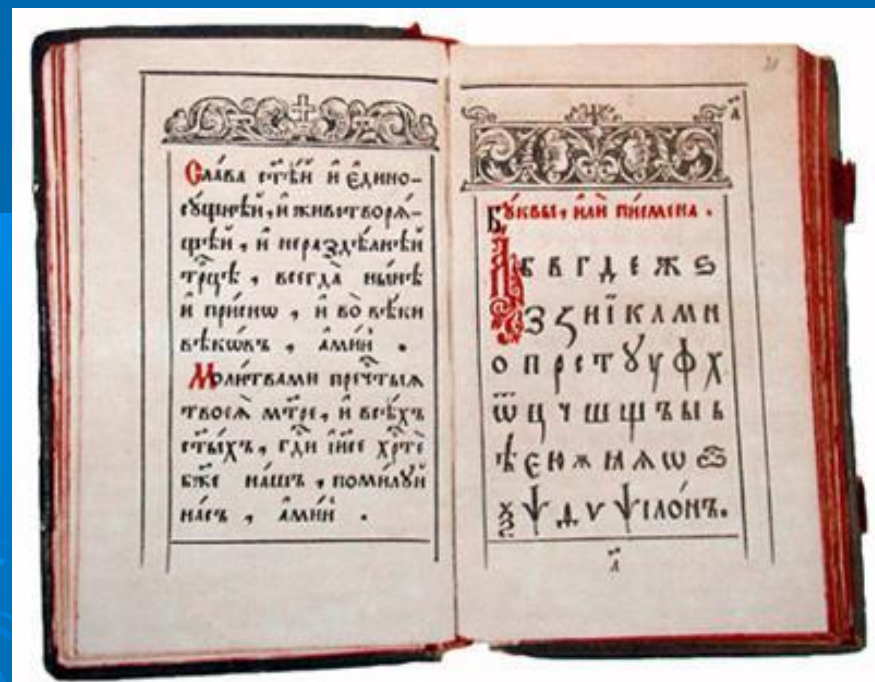 Сла́ва ст҃ѣ́й и҆ є҆дино-
сꙋ́щнѣй, и҆ животворѧ́-
щей, и҆ нераздѣ́лнѣй
трⷪ҇цѣ, всегда̀ ны́нѣ
и҆ при́снѡ, и҆ во вѣ́ки
вѣкѡ́въ, а҆ми́нь.
Моли́твами пречⷭ҇тыѧ
твоеѧ̀ мт҃ре, и҆ всѣ́хъ
ст҃ы́хъ, гдⷭ҇и і҆и҃се хрⷭ҇тѐ
бж҃е на́шъ, поми́лꙋй
на́съ, а҆ми́нь.
Бꙋ́квы, и҆лѝ пи́смена.
А Б В Г Д Е Ж Ѕ
З И Ї К Л М Н
О П Р С Т Ꙋ У Ф Х
Ѿ Ц Ч Ш Щ Ъ Ы Ь
Ѣ Є Ю Ѫ Ѧ Ѡ
Ѯ Ѱ Д Ѵ Ѱїло́нъ.